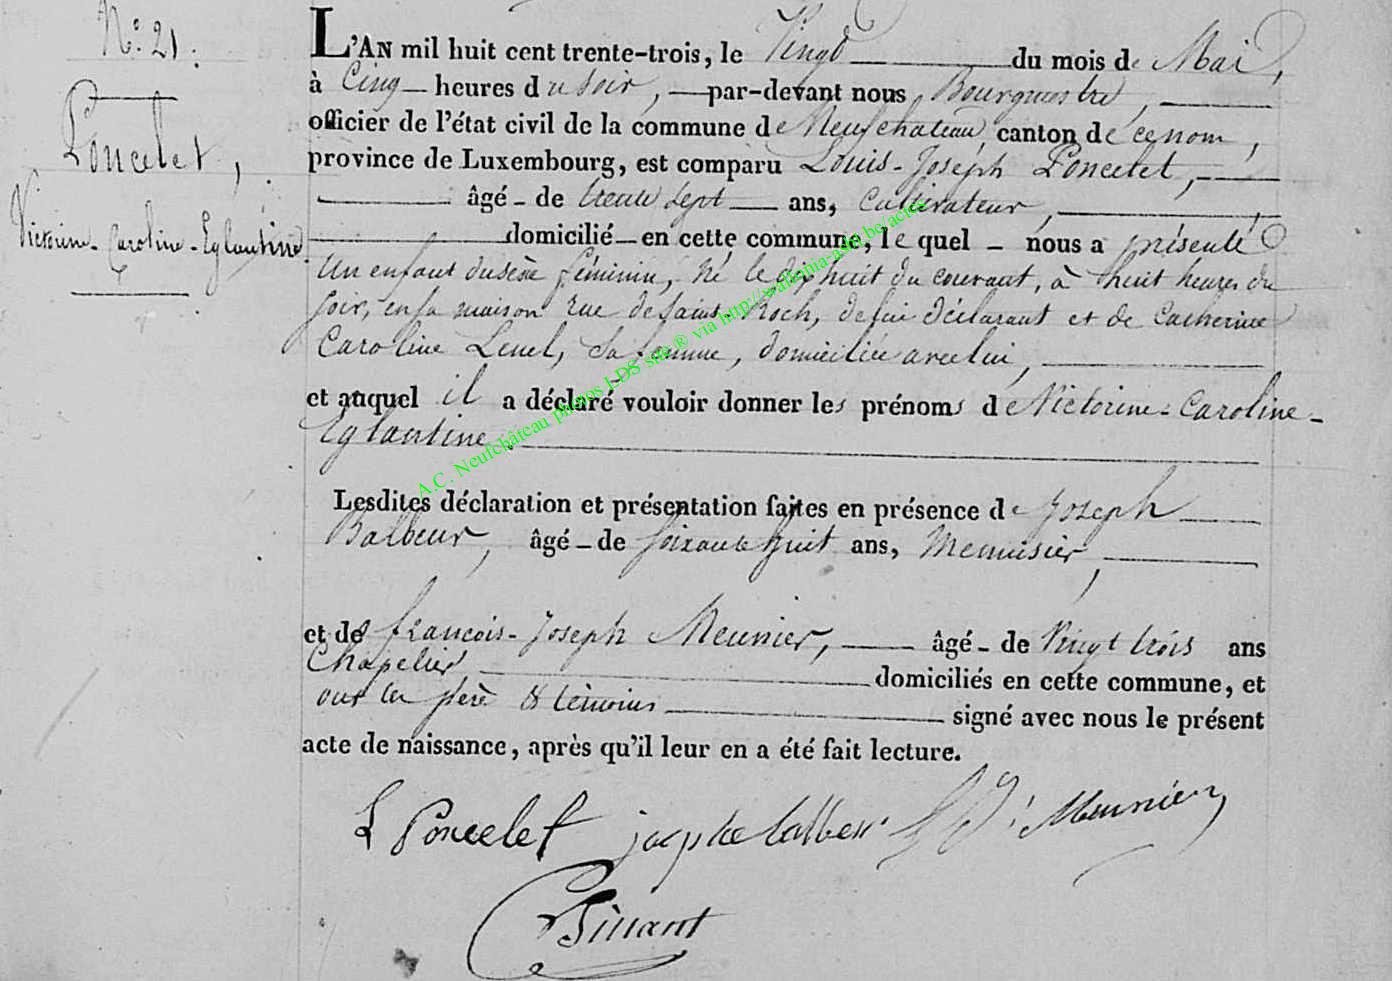 N.º 21.
Poncelet,
Victorine-Caroline-Eglantine
L'AN mil huit cent trente-trois, le Vingt du mois de Mai,
à Cinq heures du soir, par-devant nous Bourgmestre,
officier de l'état civil de la commune de Neufchateau, canton de ce nom,
province de Luxembourg, est comparu Louis-Joseph Poncelet,
âgé de trente sept ans, Cultivateur,
domicilié en cette commune, le quel nous a présenté
un enfant du sèxe féminin, né le dix huit du courant, à huit heures du
soir, en sa maison rue de Saint-Roch, de lui déclarant et de Catherine
Caroline Lenel, sa femme, domiciliée avec lui,
et auquel il a déclaré vouloir donner les prénoms de Victorine-Caroline-
Eglantine.
Lesdites déclaration et présentation faites en présence de Joseph
Balbeur, âgé de soixante huit ans, Menuisier,
et de françois-Joseph Meunier, âgé de Vingt trois ans
Chapelier domiciliés en cette commune, et
ont les père & témoins signé avec nous le présent
acte de naissance, après qu'il leur en a été fait lecture.
L Poncelet
f j Meunier
A.C. Neufchâteau photos LDS site ® via http://wallonia-asbl.be/actes